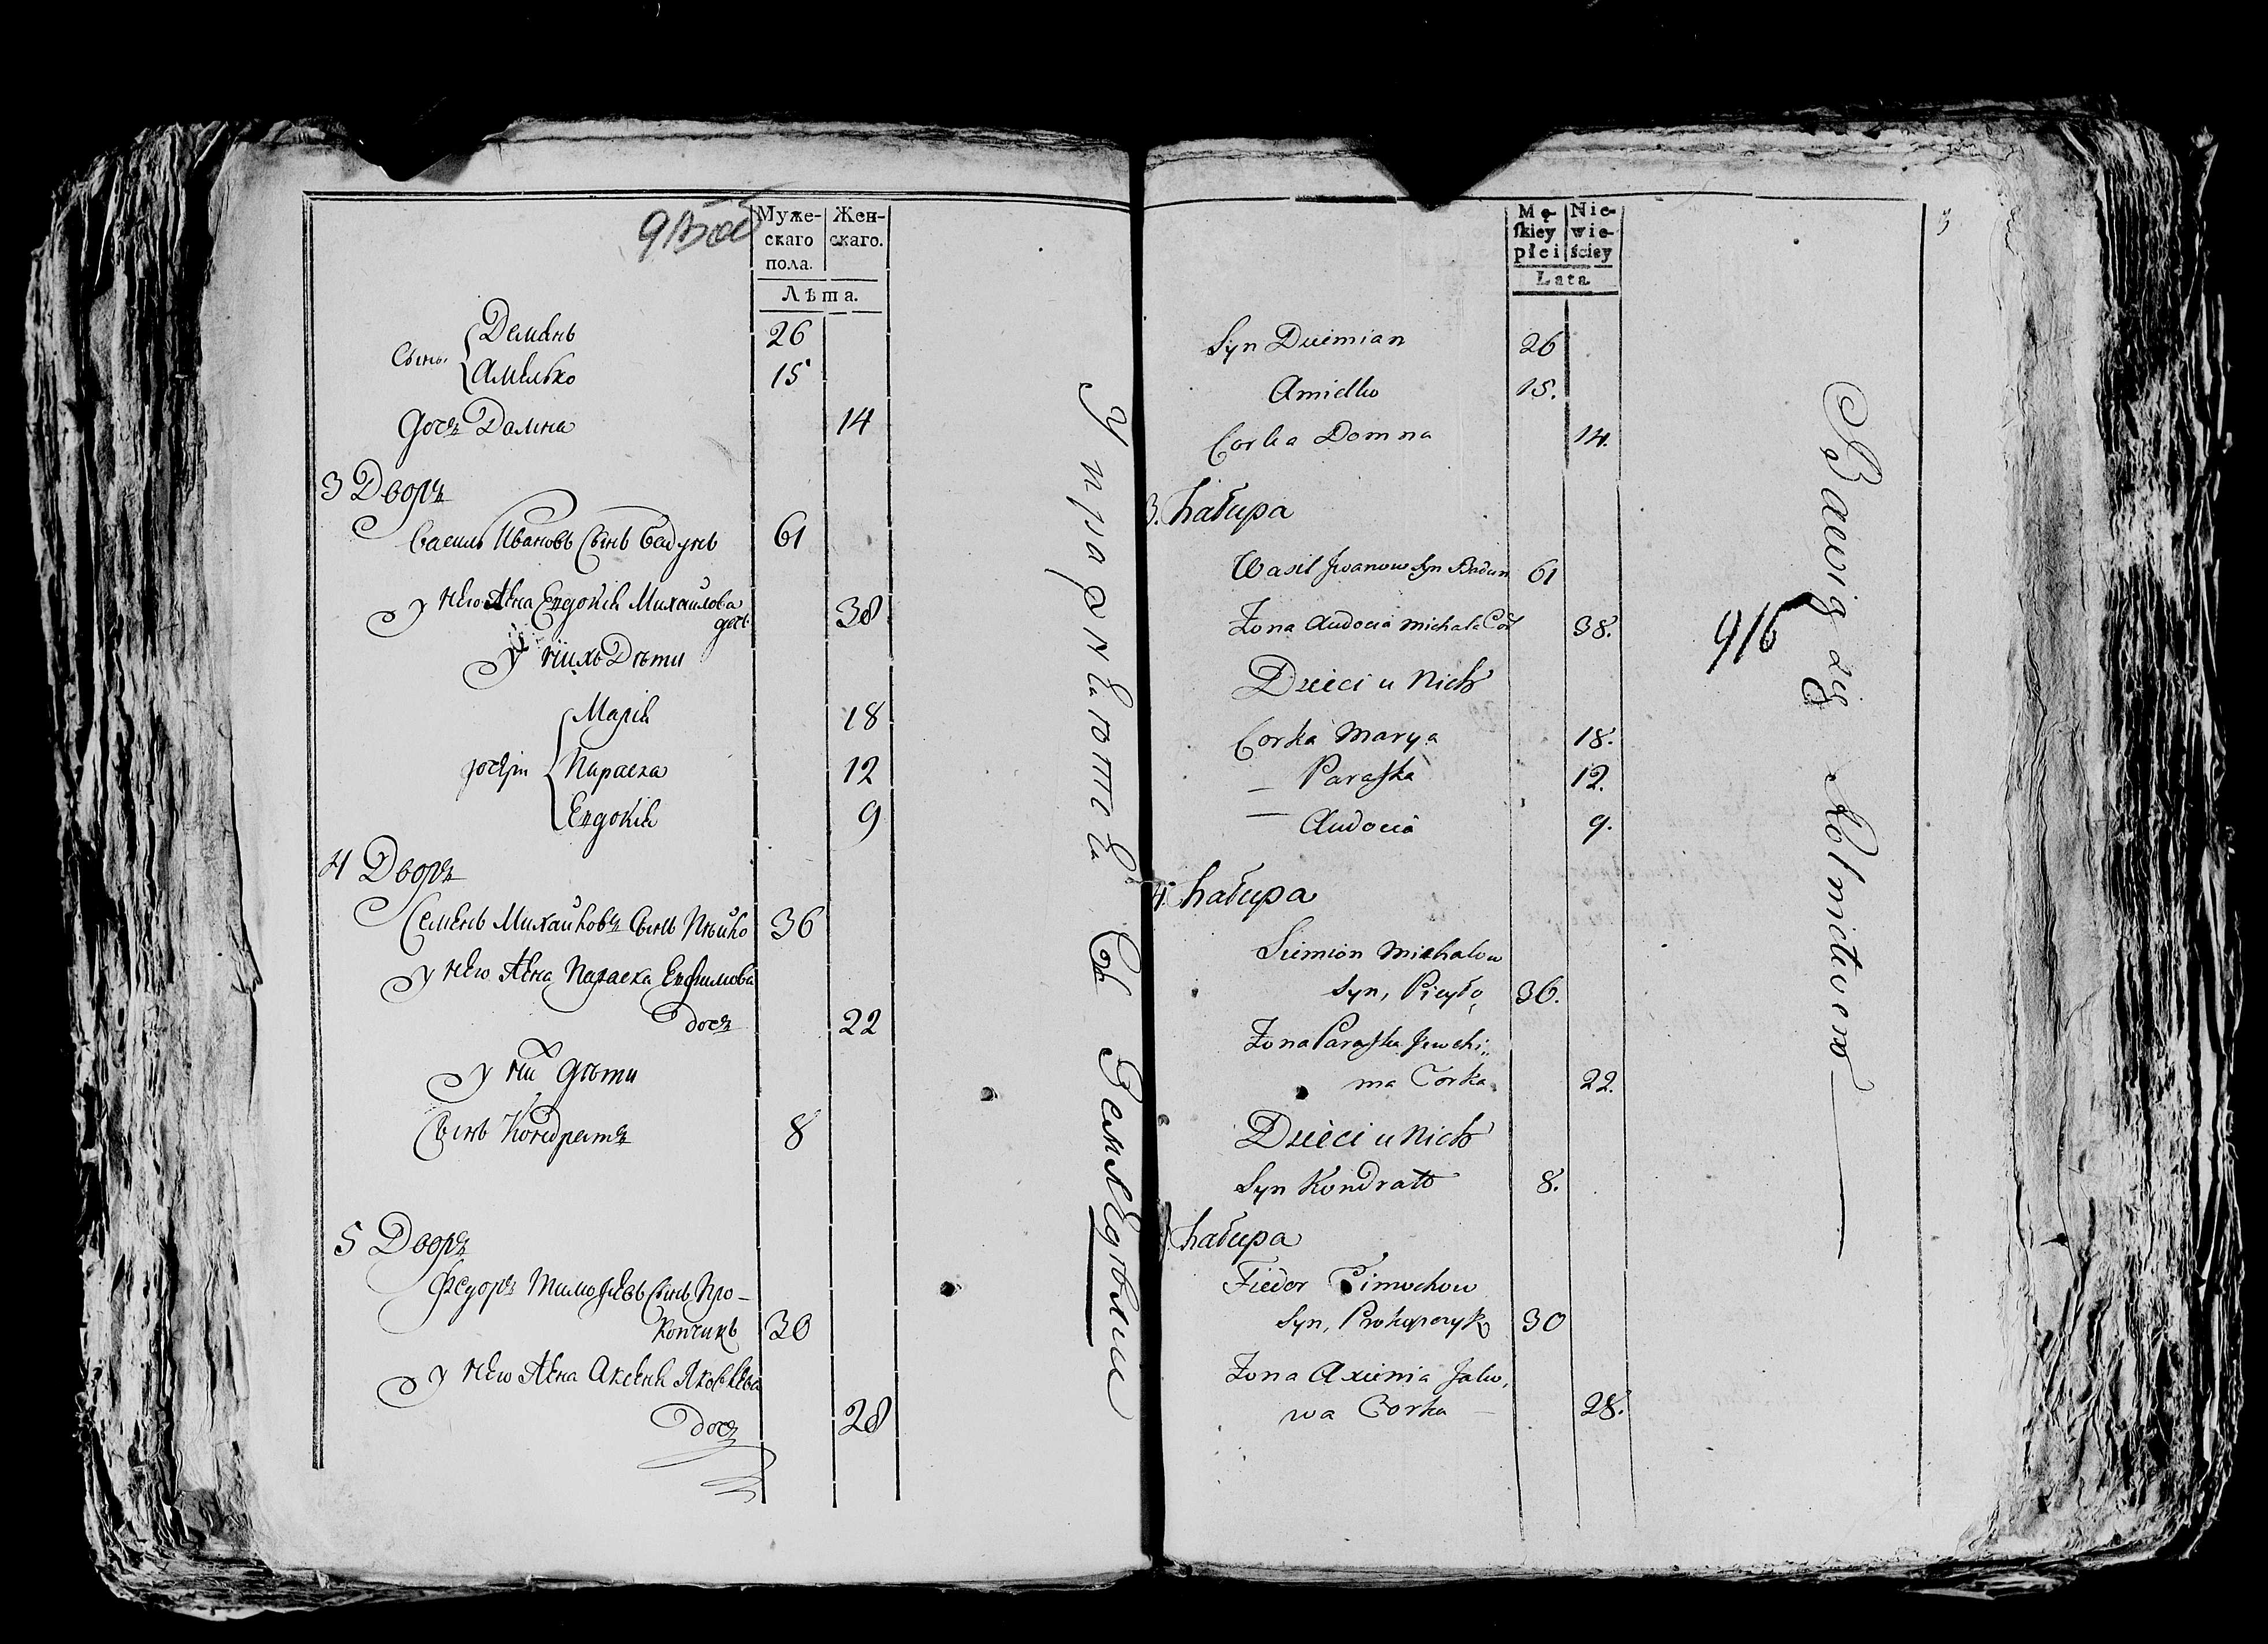 Муже-
скаго
пола.
Жен-
скаго.
Лѣта.
Сынъ Демянъ 26
Амелько 15
Дочъ Домна 14
3 Дворъ
Василь Ивановъ Сынъ Бадунъ 61
У него Жена Евдокія Михайлова
дочь 38
У нихъ Дѣти
Марія 18
дочери Параска 12
Евдокія 9
4 Дворъ
Семенъ Михайловъ Сынъ 36
У него Жена Параска Евфимова
Дочъ 22
У них дѣти
Сынъ Кондратъ 8
5 Дворъ
Федоръ Тимофѣевъ Сынъ Про-
копчикъ 30
У него Жена Аксенія Яковлева
Дочъ 28
Упражняются Въ Земледѣлии
Mę-
skiey
płci
Nie-
wie-
ściey
Lata
Syn Dziemian 26
Amielko 15.
Corka Domna 14.
3. Chałupa
Wasil Iwanow Syn Badun 61
Żona Audocia Michała Cór 38.
Dzieci u Nich
Corka Marya 18.
— Paraska 12.
— Audocia 9.
4. Chałupa
Siemion Michałow
Syn, 36.
Żona Paraska Jewchi„
ma Corka 22.
Dzieci u Nich
Syn Kondrat 8.
Chałupa
Fiedor Timochow
Syn, Prokopczyk 30
Żona Axienia Jako,
wa Corka — 28.
916
Bawią się Rolnictwem
3